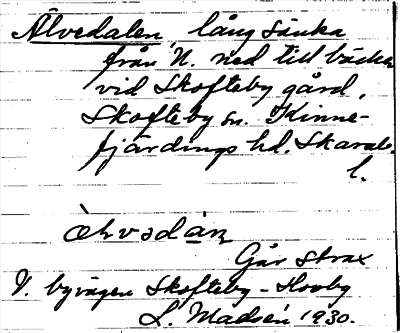 Älvedalen, lång sänka
från N. ned till bäcken
vid Skofteby gård,
Skofteby sn. Kinne-
fjärdings hd. Skarab.
l.
òlvədàn
Går strax
V. byvägen Skofteby - Hovby
L. Madsén 1930.